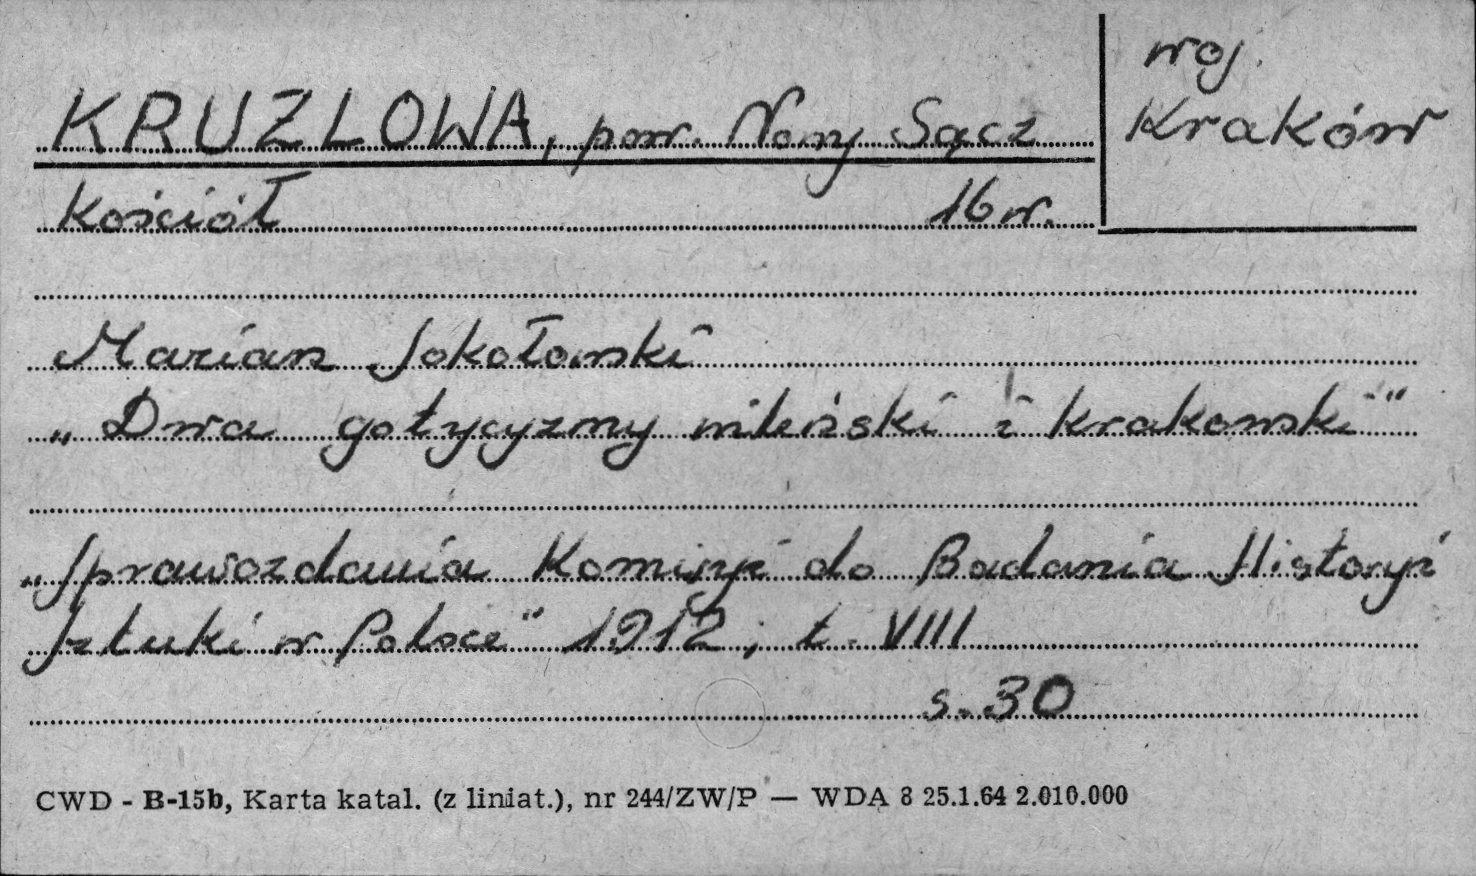 woj.
Kraków
KRUZLOWA, pow. Nowy Sącz
Kościół 16 w.
Marian Sokołowski
„Dwa gotycyzmy wileński i krakowski"
„Sprawozdania Komisyi do Badania Historyi
Sztuki w Polsce" 1912, t. VIII
s. 30
CWD - B-15b, Karta katal. (z liniat.), nr 244/ZW/P — WDA 8 25.1.64 2.010.000